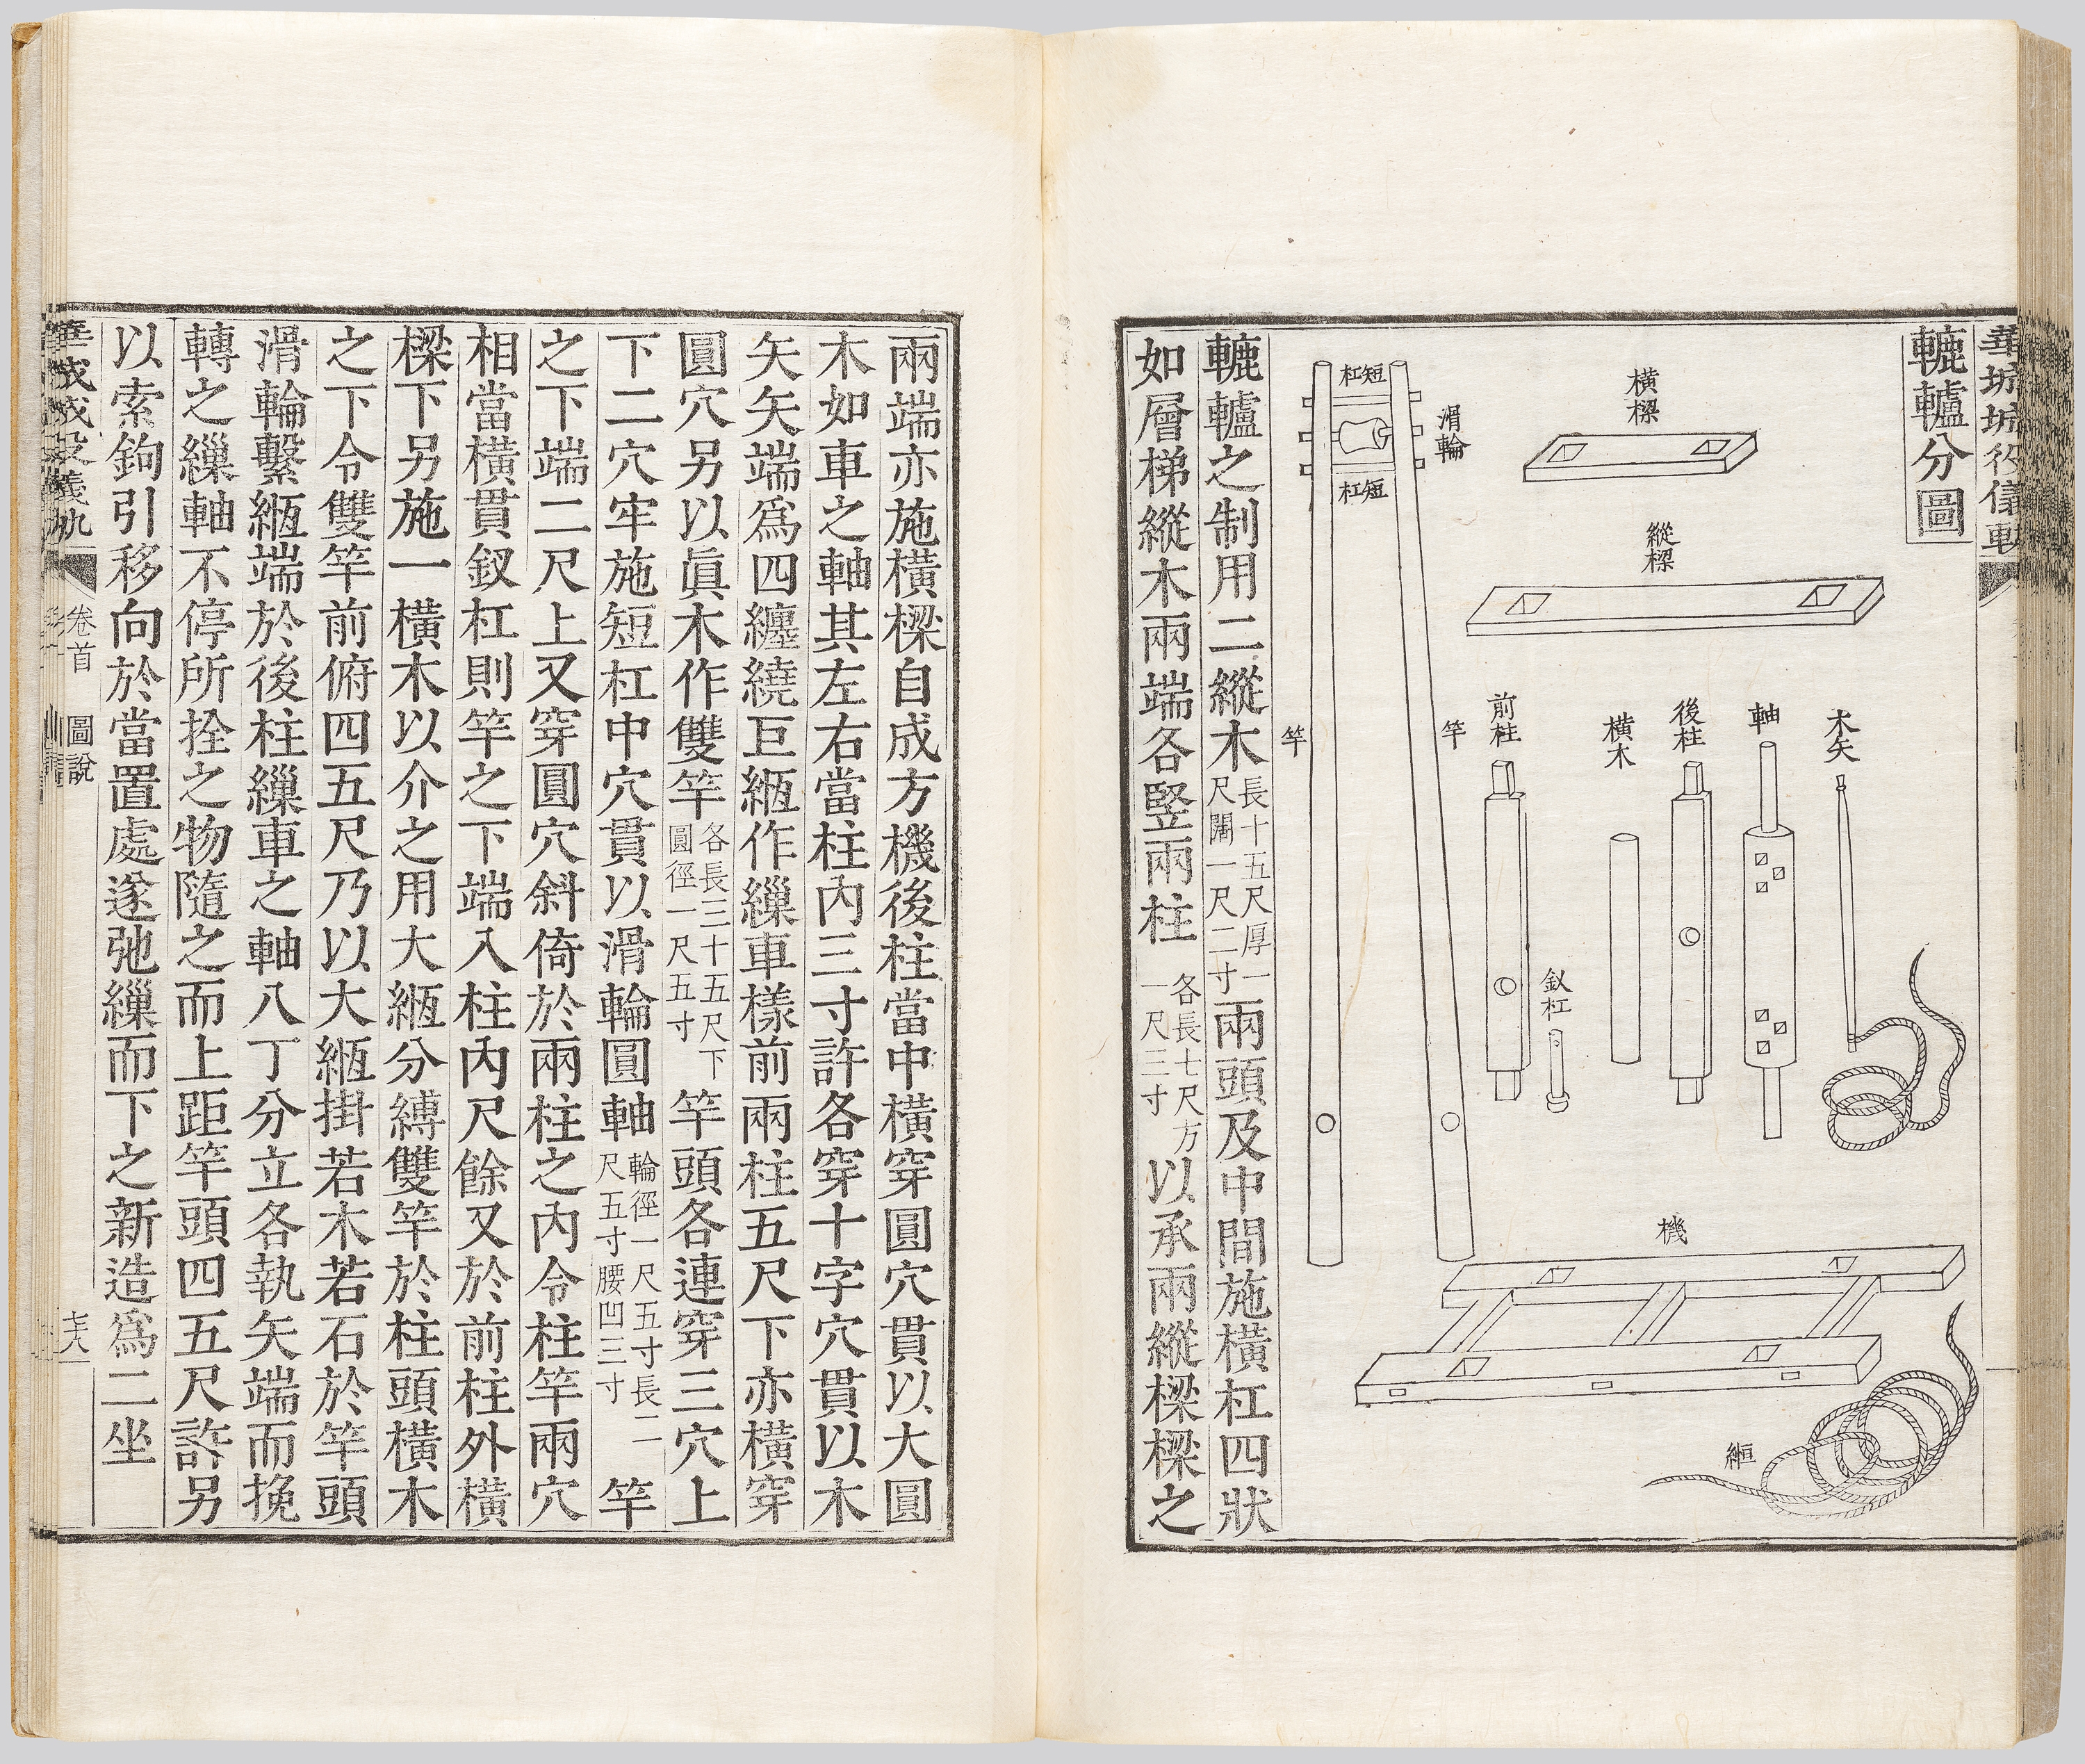 轆轤分圖
橫樑
縱樑
木矢
軸
後柱
橫木
前柱
釵杠
滑輪
短杠
短杠
竿
竿
機
縆
轆轤之制用二縱木長十五尺厚一尺闊一尺二寸兩頭及中間施橫杠四狀
如層梯縱木兩端各竪兩柱各長七尺方一尺三寸以承兩縱樑樑之
兩端亦施橫樑自成方機後柱當中橫穿圓穴貫以大圓
木如車之軸其左右當柱內三寸許各穿十字穴貫以木
矢矢端爲四纏繞巨縆作繅車樣前兩柱五尺下亦橫穿
圓穴另以眞木作雙竿各長三十五尺下圓徑一尺五寸竿頭各連穿三穴上
下二穴牢施短杠中穴貫以滑輪圓軸輪徑一尺五寸長二尺五寸腰凹三寸竿
之下端二尺上又穿圓穴斜倚於兩柱之內令柱竿兩穴
相當橫貫釵杠則竿之下端入柱內尺餘又於前柱外橫
樑下另施一橫木以介之用大縆分縛雙竿於柱頭橫木
之下令雙竿前俯四五尺乃以大縆掛若木若石於竿頭
滑輪繫縆端於後柱繅車之軸八丁分立各執矢端而挽
轉之繅軸不停所拴之物隨之而上距竿頭四五尺許另
以索鉤引移向於當置處遂弛繅而下之新造爲二坐
卷首
圖說